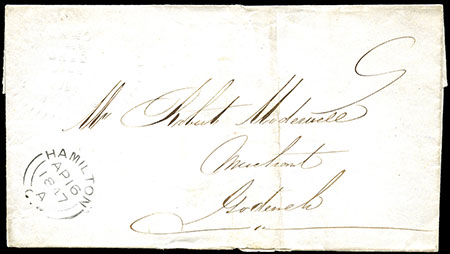 Mr Robert Modewell
Merchant
Goderich
HAMILTON
AP 16
1847
A